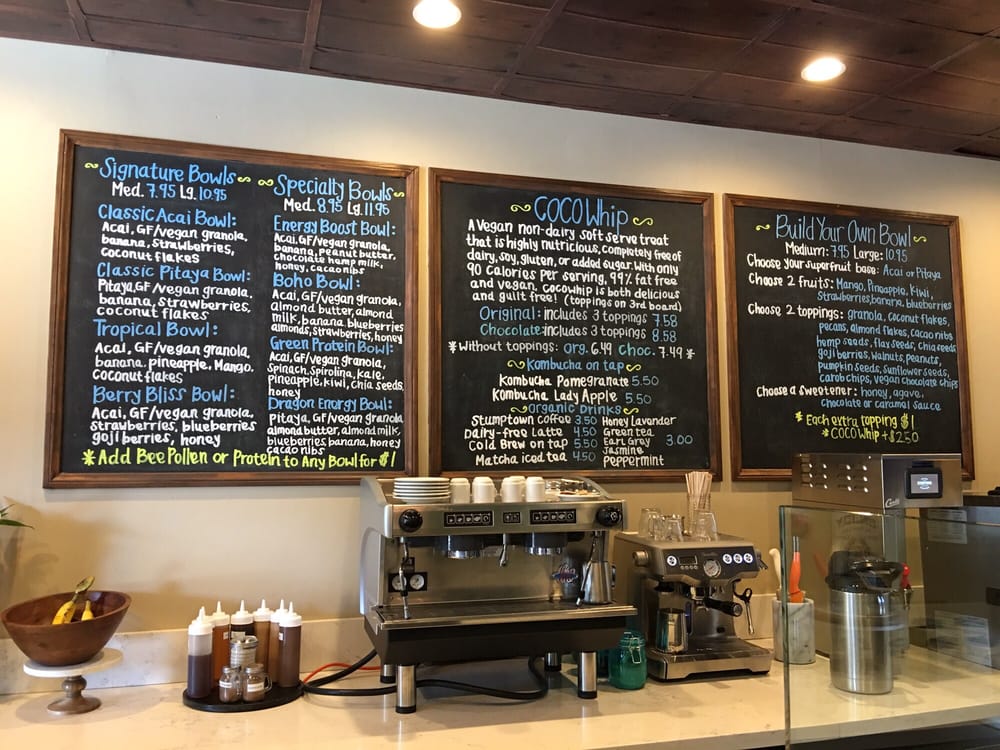 Signature Bowls
Med. 7.95 Lg. 10.95
Classic Acai Bowl:
Acai, GF/vegan granola,
banana, strawberries,
coconut flakes
Classic Pitaya Bowl:
Pitaya, GF/vegan granola,
banana, strawberries,
coconut flakes
Tropical Bowl:
Acai, GF/vegan granola,
banana, pineapple, Mango,
coconut flakes
Berry Bliss Bowl:
Acai, GF/vegan granola,
strawberries, blueberries
goji berries, honey
Specialty Bowls
Med. 8.95 Lg. 11.95
Energy Boost Bowl:
Acai, GF/vegan granola,
banana, peanut butter,
chocolate hemp milk,
honey, cacao nibs
Boho Bowl:
Acai, GF/vegan granola,
almond butter, almond
milk, banana blueberries
almonds, strawberries, honey
Green Protein Bowl:
Acai, GF/vegan granola,
Spinach, Spirolina, kale
pineapple, kiwi, chia seeds,
honey
Dragon Energy Bowl:
Pitaya, GF/vegan granola
almond butter, almond milk,
blueberries banana, honey
cacao nibs
* Add Bee Pollen or Protein to Any Bowl for $1
COCO Whip
A Vegan non-dairy soft serve treat
that is highly nutricious, completely free of
dairy, soy, gluten, or added sugar. With only
90 Calories per serving, 99% fat free
and vegan, cocowhip is both delicious
and guilt free! (toppings on 3rd board)
Original: includes 3 toppings 7.58
Chocolate: includes 3 toppings 8.58
*Without toppings: org. 6.49 choc. 7.49 *
Kombucha on tap
Kombucha Pomegranate 5.50
Kombucha Lady Apple 5.50
organic Drinks
Stumptown coffee 3.50
Dairy-free Latte 4.50
Cold Brew on tap 5.50
Matcha iced tea 4.50
Honey Lavender
Green tea
Earl Grey 3.00
Jasmine
Peppermint
Build Your Own Bowl
Medium: 7.95 Large: 10.95
Choose your superfruit base: Acai or Pitaya
Choose 2 fruits: Mango, Pineapple, Kiwi,
strawberries, banana, blueberries
Choose 2 toppings: granola, coconut flakes,
pecans, almond flakes, cacao nibs
hemp seeds, flax seeds, chia seeds
goji berries, walnuts, peanuts,
pumpkin seeds, sunflower seeds,
carob chips, vegan chocolate chips
Choose a sweetener: honey, agave,
chocolate or caramel sauce
* Each extra topping $1
* COCO Whip + $2.50